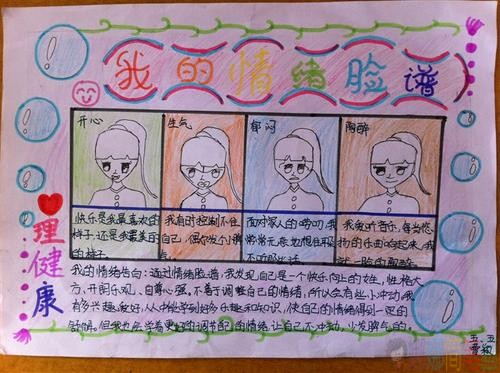 我的情绪脸谱
开心
生气
郁闷
陶醉
快乐是我最喜欢的
样子,还是我最美的
的样子
我有时控制不住
自己,偶尔发个小脾
气
面对家人的唠叨,我
常常无奈,也想住耳
不听那些话
我爱听音乐,每当悠
扬的乐曲响起来,我
就一脸的陶醉
心理健康
我的情绪告白:通过情绪脸谱,我发现自己是一个快乐、向上的女生,性格大
方、开朗乐观,自尊心强,不善于调整自己的情绪,所以会有些小冲动,我
有多兴趣、爱好,从中能学到好多乐趣和知识,使自己的情绪得到一定的
舒畅。但我也会学着更好的调节自己的情绪,让自己不冲动,少发脾气的。
五、五